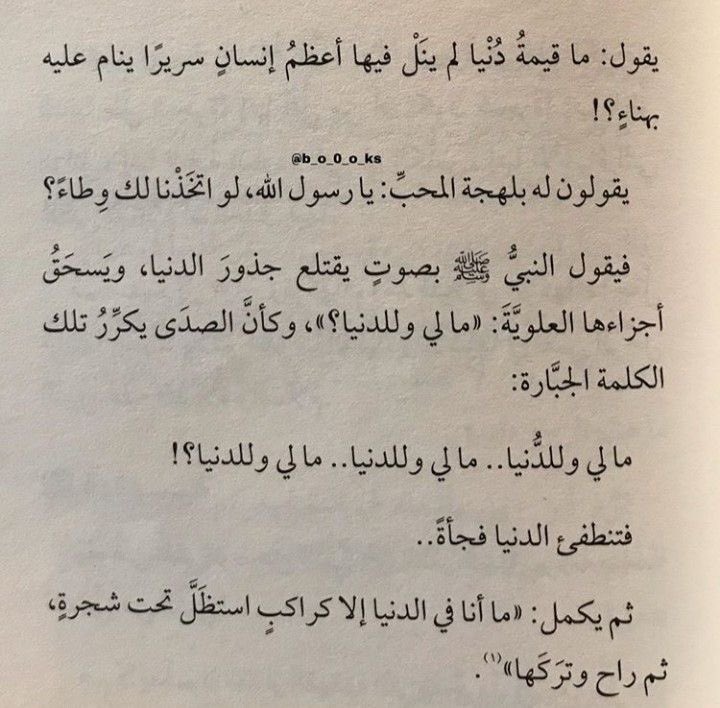 يقول: ما قيمةُ دُنْيا لم ينَلْ فيها أعظمُ إنسانٍ سريرًا ينام عليه
بهناءٍ؟!
@b_o_0_o_ks
يقولون له بلهجة المحبِّ: يا رسول الله، لو اتخَذْنا لك وِطاءً؟
فيقول النبيُّ ﷺ بصوتٍ يقتلع جذورَ الدنيا، ويَسحَقُ
أجزاءها العلويَّةَ: «ما لي وللدنيا؟»، وكأنَّ الصدَى يكرِّرُ تلك
الكلمة الجبَّارة:
ما لي وللدُّنيا.. ما لي وللدنيا.. ما لي وللدنيا؟!
فتنطفئ الدنيا فجأةً..
ثم يكمل: «ما أنا في الدنيا إلا كراكبٍ استظَلَّ تحت شجرةٍ،
ثم راح وترَكَها»(١).